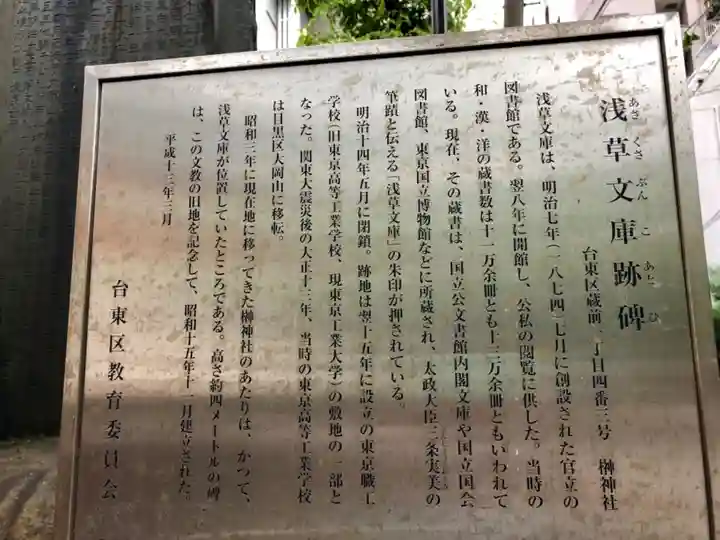 浅草文庫跡碑
あさ くさ ぶん こ あと ひ
台東区蔵前一丁目四番三号 榊神社
浅草文庫は、明治七年(一八七四)七月に創設された官立の
図書館である。翌八年に開館し、公私の閲覧に供した。当時の
和・漢・洋の蔵書数は十一万余冊とも十三万余冊ともいわれて
いる。現在、その蔵書は、国立公文書館内閣文庫や国立国会
図書館、東京国立博物館などに所蔵され、太政大臣三条実美の
筆蹟と伝える「浅草文庫」の朱印が押されている。
明治十四年五月に閉鎖。跡地は翌十五年に設立の東京職工
学校(旧東京高等工業学校、現東京工業大学)の敷地の一部と
なった。関東大震災後の大正十三年、当時の東京高等工業学校
は目黒区大岡山に移転。
昭和三年に現在地に移ってきた榊神社のあたりは、かつて、
浅草文庫が位置していたところである。高さ約四メートルの碑
は、この文教の旧地を記念して、昭和十五年十一月建立された。
平成十三年三月
台東区教育委員会